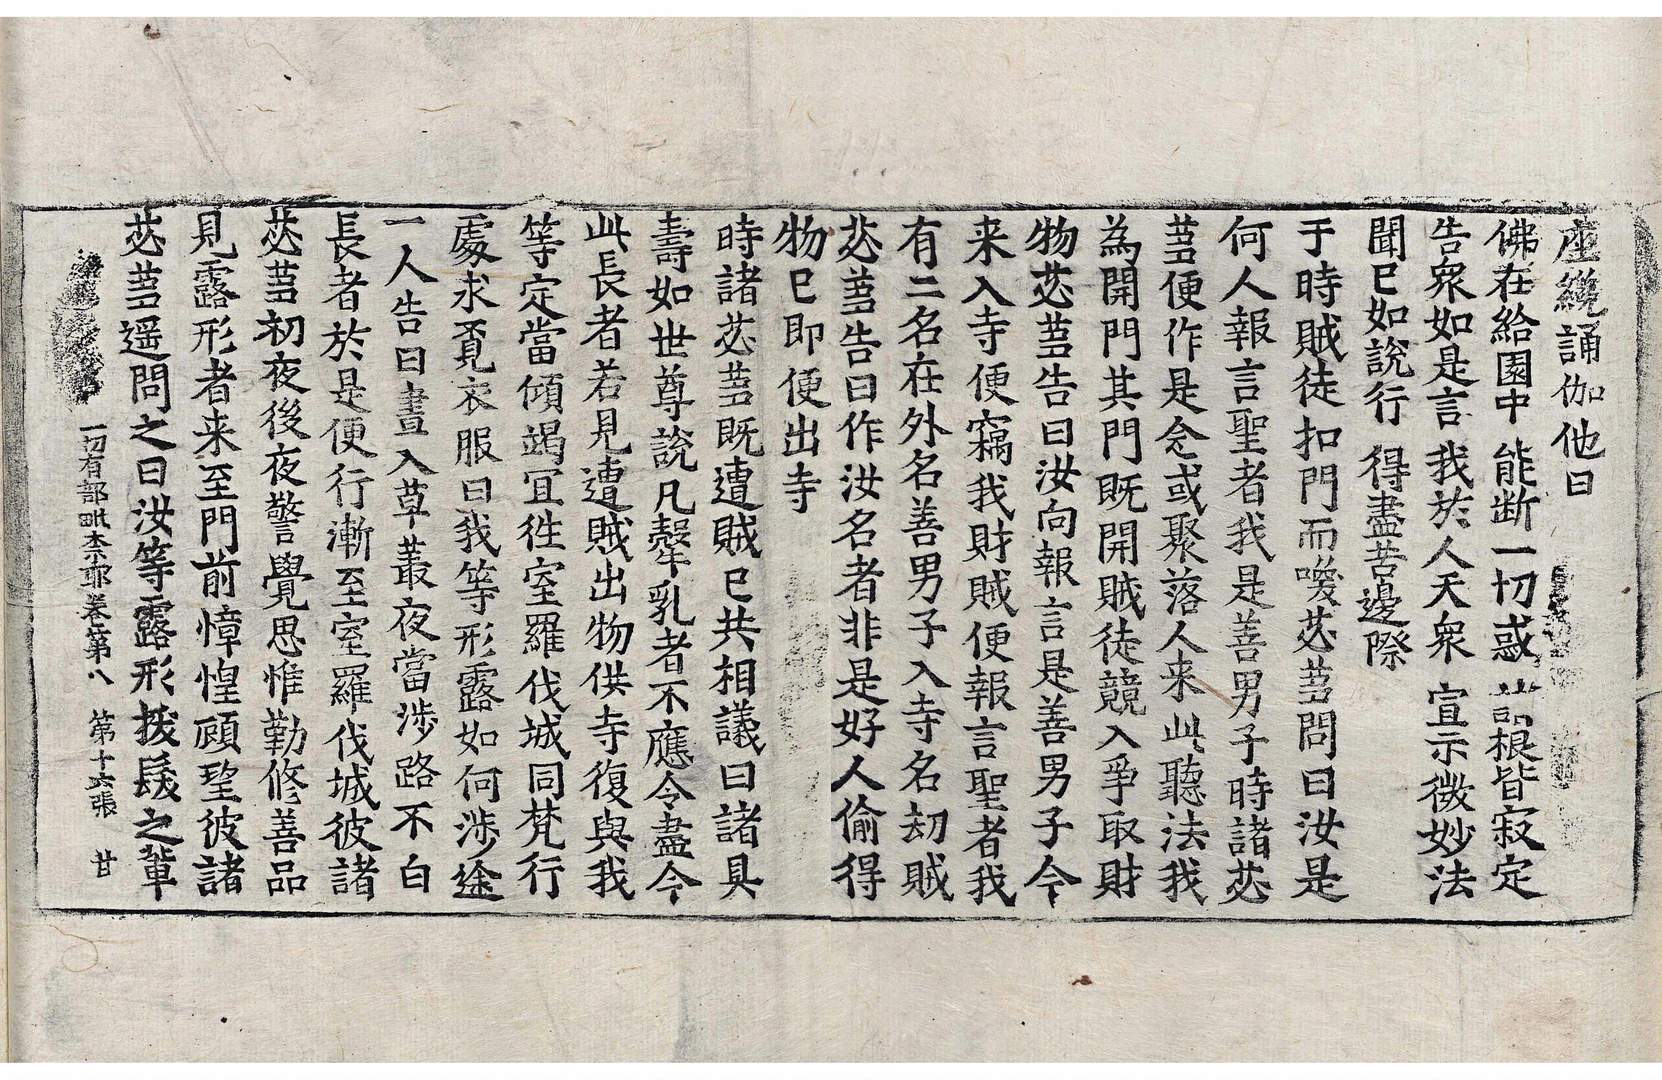 座纔誦伽他曰
佛在給園中 能断一切惑 諸根皆寂定
告衆如是言 我於人天衆 宣示微妙法
聞已如說行 得盡苦邊際
于時賊徒扣門而喚苾蒭問曰汝是
何人報言聖者我是善男子時諸苾
蒭便作是念或聚落人来此聽法我
為開門其門既開賊徒競入爭取財
物苾蒭告曰汝向報言是善男子今
来入寺便竊我財賊便報言聖者我
有二名在外名善男子入寺名劫賊
苾蒭告曰作汝名者非是好人偷得
物已即便出寺
時諸苾蒭既遭賊已共相議曰諸具
壽如世尊說凡㲉乳者不應令盡今
此長者若見遭賊出物供寺復與我
等定當傾竭冝徃室羅伐城同梵行
處求覔衣服曰我等形露如何涉途
一人告曰晝入草叢夜當涉路不白
長者於是便行漸至室羅伐城彼諸
苾蒭初夜後夜警覺思惟勤修善品
見露形者来至門前慞惶顧望彼諸
苾蒭遥問之曰汝等露形拔髮之輩
一切有部毗柰耶卷第八 第十六張 甘